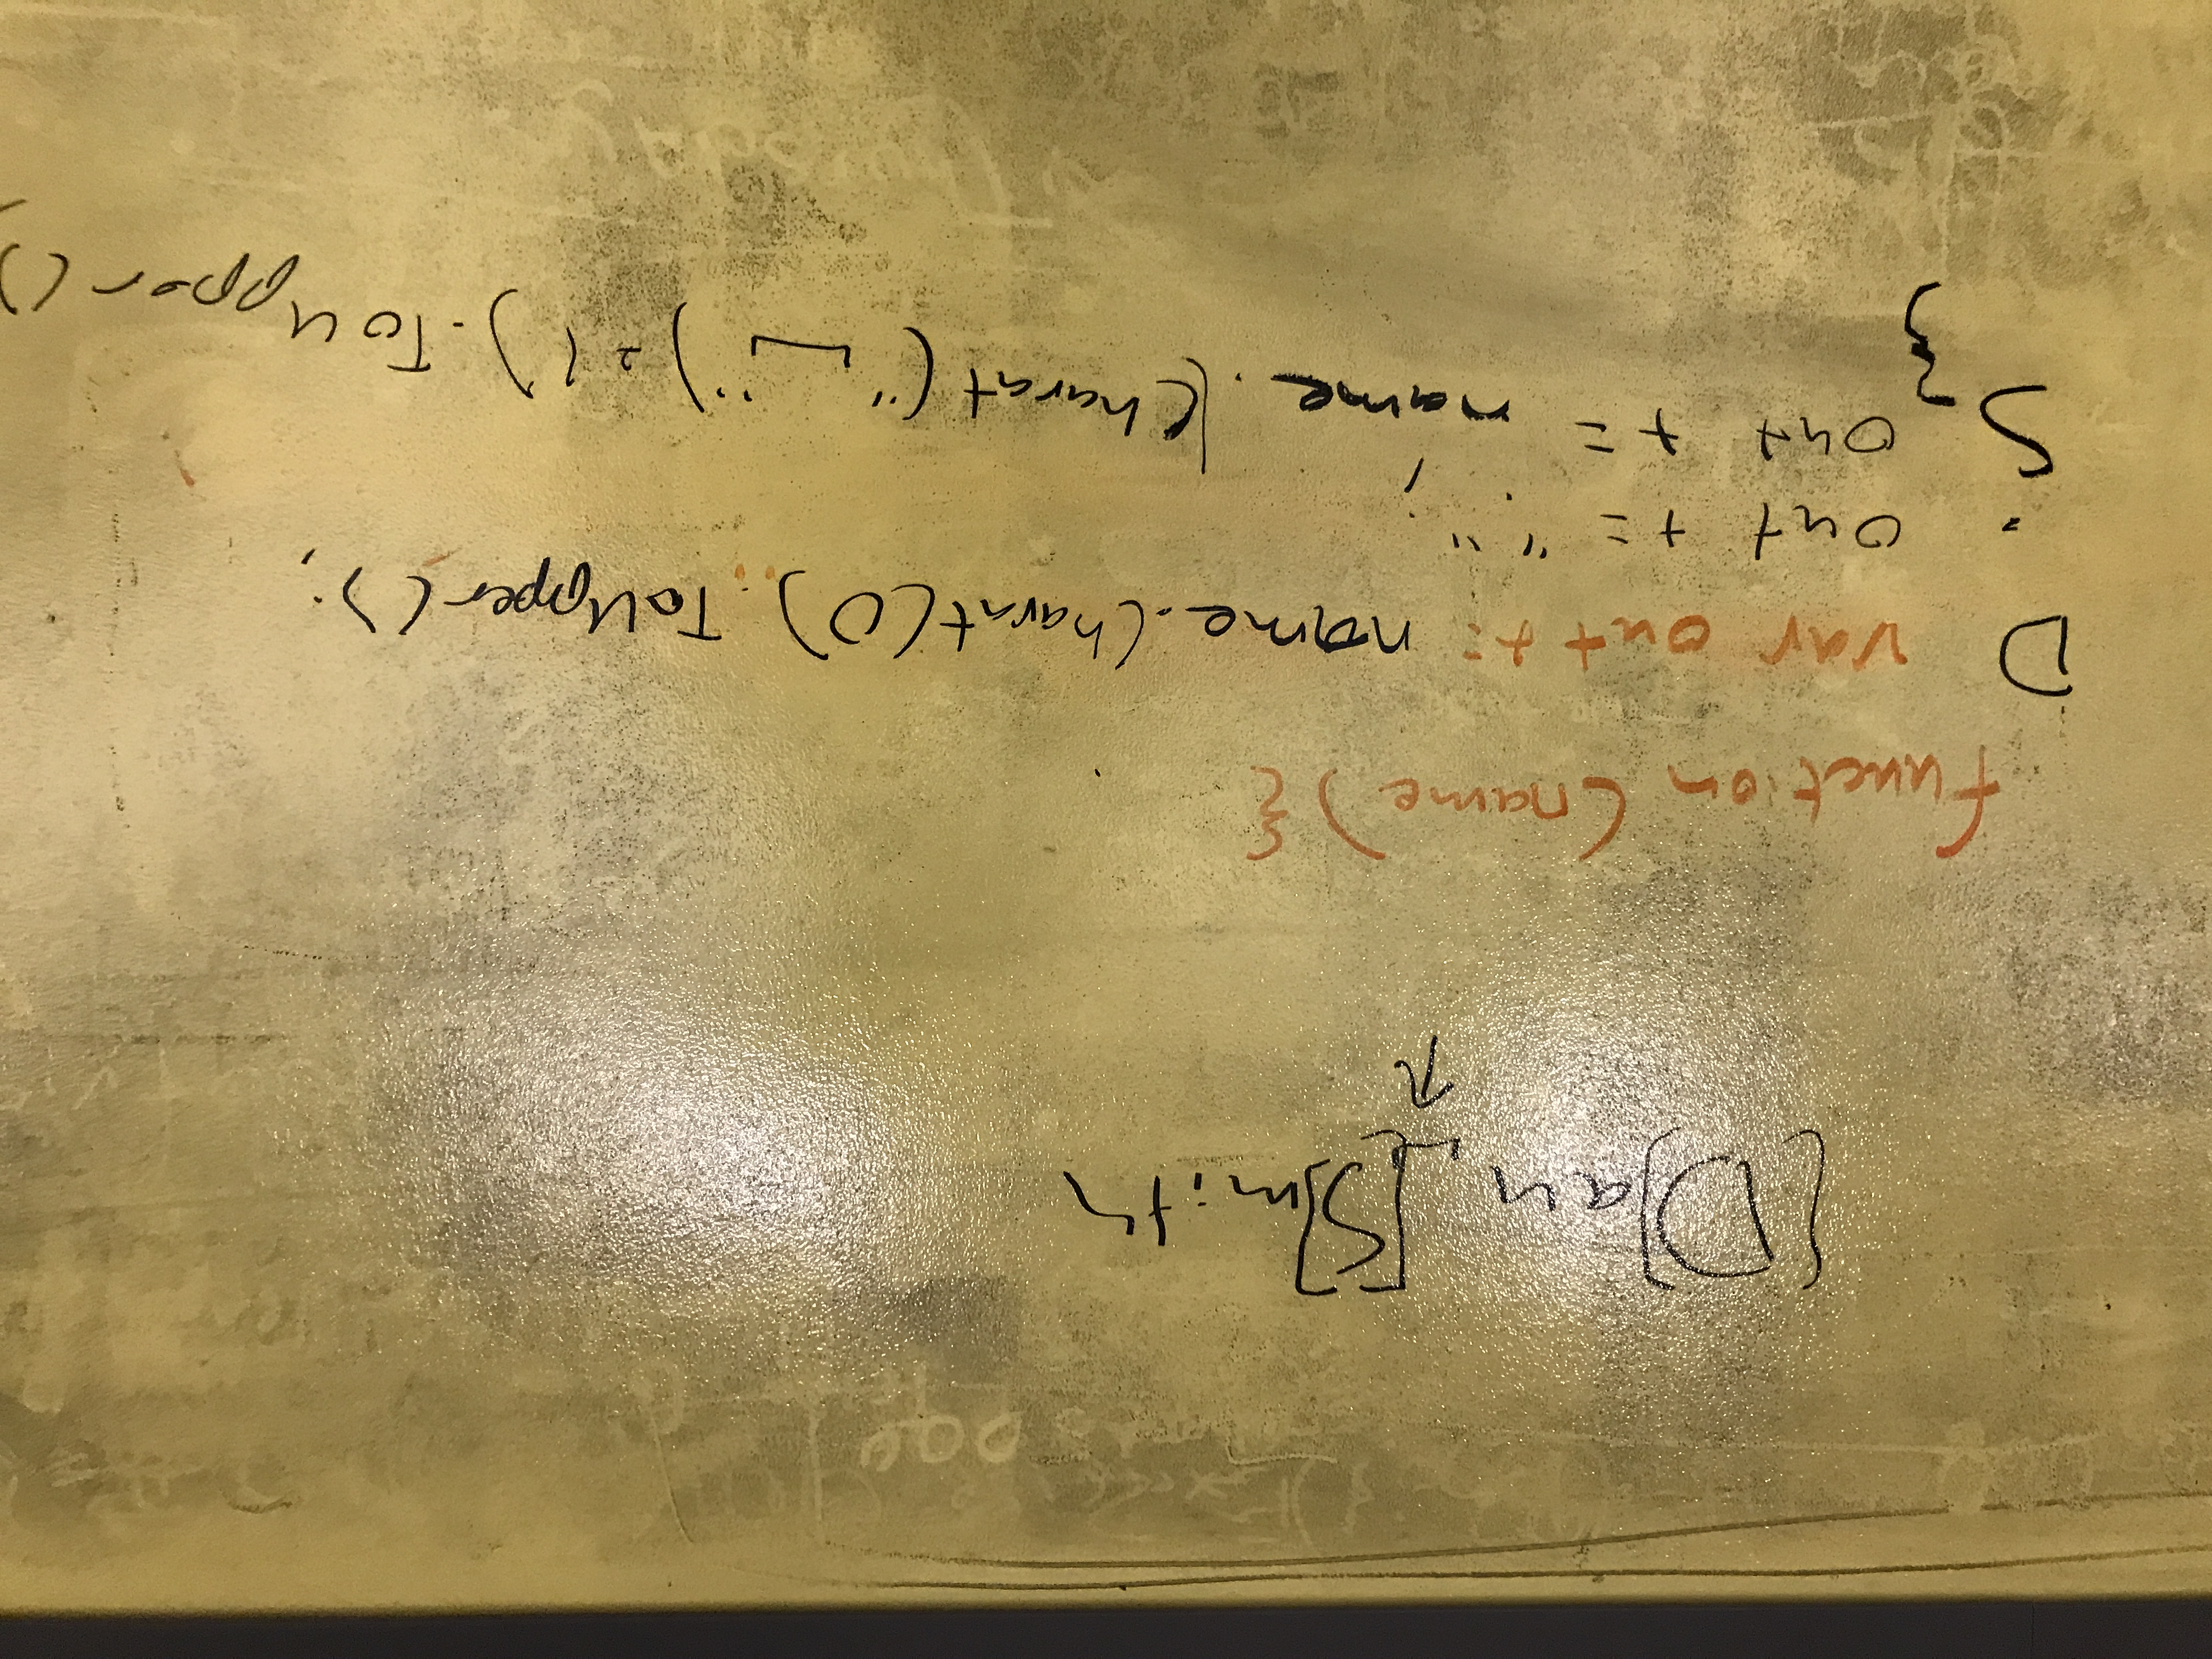 [D]an ␣ [S]mith
↑
function (name) {
D var out += name.Charat(0).ToUpper();
. out += ".";
S out += name.Charat("␣") .ToUpper()
}